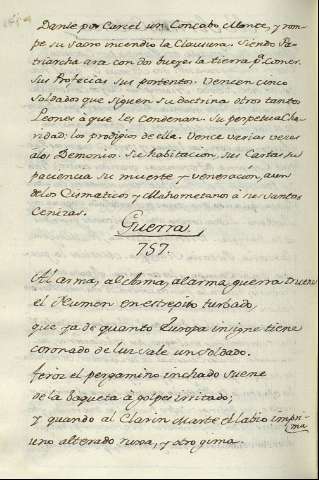 Danle por Carcel un Concabo Monte, y rom-
pe su sacro incendio la Clausura. Siendo Pa-
triarcha ara con dos bueyes la tierra pª. Comer.
Sus Profecias sus portentos. Vencen cinco
Soldados que siguen su doctrina otros tantos
Leones à que les condenan. Su perpetua Cha-
ridad: los prodigios de ella. Vence varias veces
álos Demonios. Su habitacion, sus Cartas su
paciencia su muerte y veneracion, aun
delos Cismaticos y Mahometanos à sus santas
Cenizas.
Guerra
757.
Al arma, al Arma, al arma, guerra truene
el Numen en estrepito turbado
que ya de quanto Europa insigne tiene
coronado de luz sale un soldado.
feroz el pergamino inchado suene
de la baqueta à golpes irritado;
y quando al Clarin Marte el labio impri-
ma
uno alterado ronca, y otro gima.